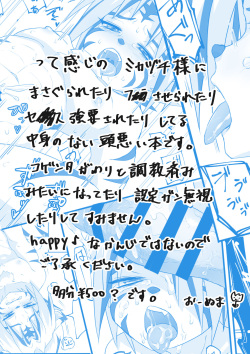 って感じの ミカヅチ様に
まさぐられたり させられたり
強要されたり してる
中身のない 頭悪い本です。
コゲンタがわりと調教済み
みたいになってたり 設定ガン無視
したりして すみません。
happy♪ なかんじではないので
ご了承ください。
多分¥500？です。
おーぬま